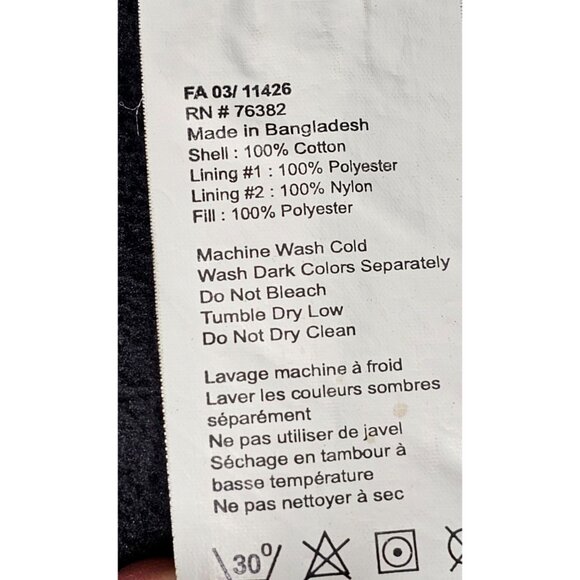 FA 03/ 11426
RN # 76382
Made in Bangladesh
Shell : 100% Cotton
Lining #1 : 100% Polyester
Lining #2 : 100% Nylon
Fill : 100% Polyester
Machine Wash Cold
Wash Dark Colors Separately
Do Not Bleach
Tumble Dry Low
Do Not Dry Clean
Lavage machine à froid
Laver les couleurs sombres
séparément
Ne pas utiliser de javel
Séchage en tambour à
basse température
Ne pas nettoyer à sec
30°